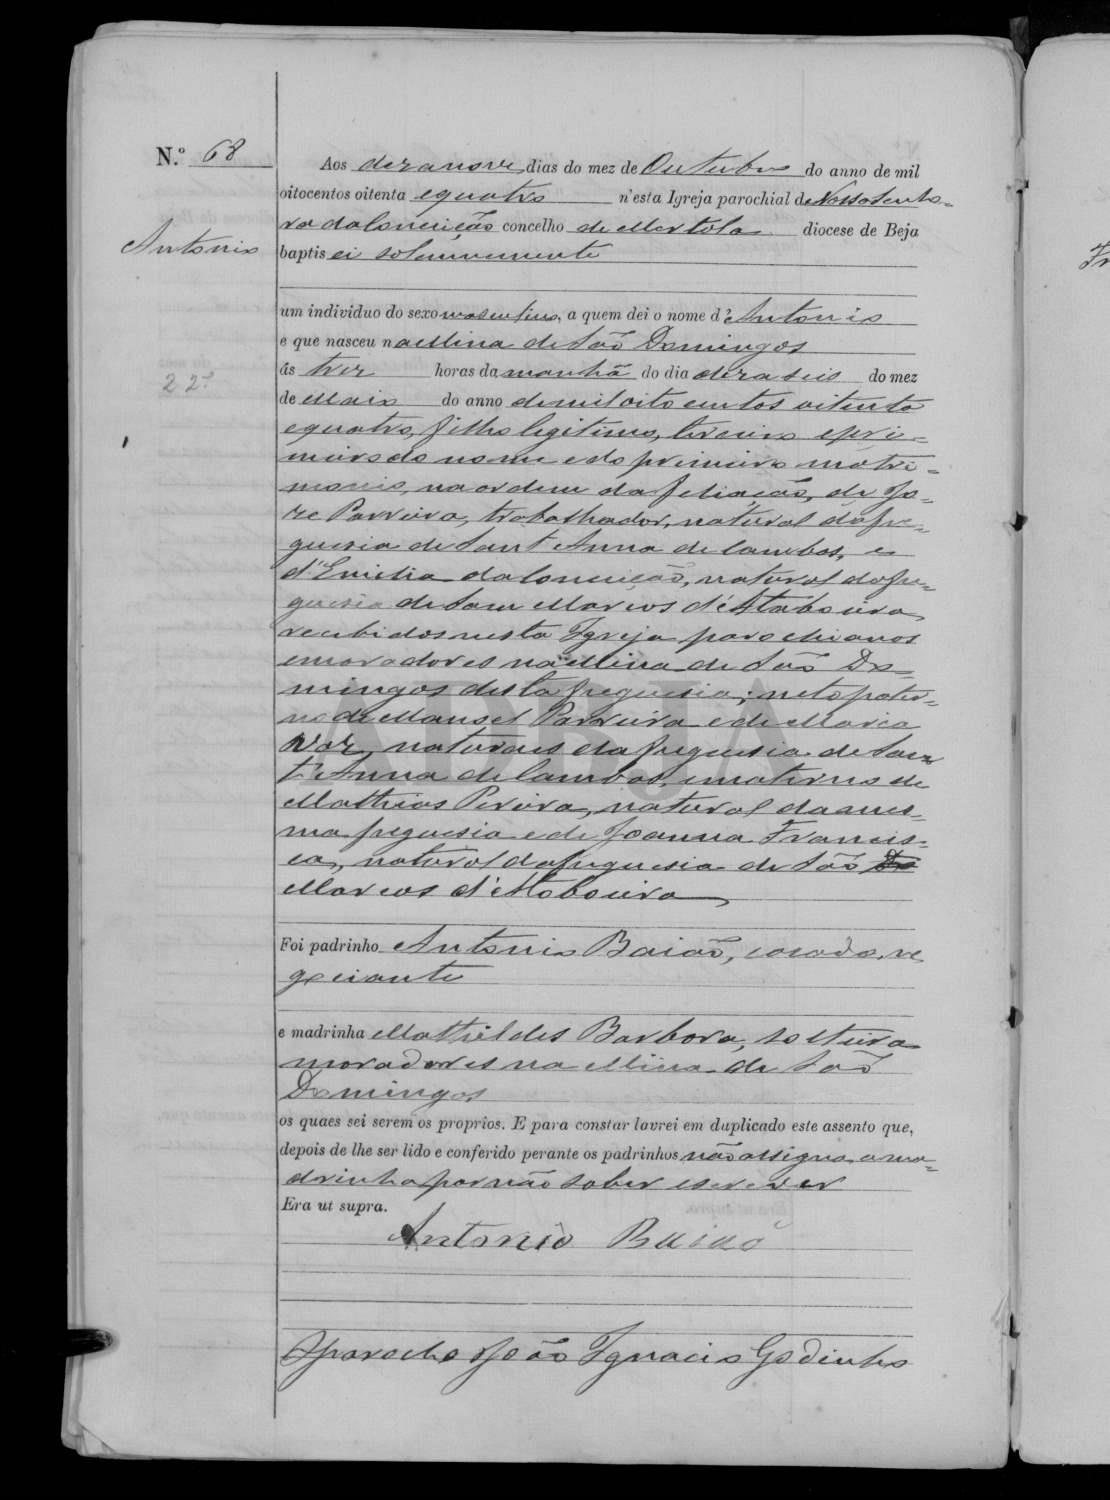 N.º 68
Aos dezanove dias do mez de Outubro do anno de mil
oitocentos oitenta equatro n'esta Igreja parochial de Nossa Senho-
ra da Conceição concelho de Mertola diocese de Beja
Antonio
baptisei solemnemente
um individuo do sexo masculino, a quem dei o nome d'Antonio
e que nasceu na Mina de São Domingos
ás trez horas da manhã do dia dezaseis do mez
22
de Maio do anno de mil oito centos oitenta
equatro, filho legitimo, terceiro e pri-
meiro do nome e do primeiro matri-
monio, na ordem da filiação, de Jo-
ze Parreira, trabalhador, natural da fre-
guesia de Sant'Anna de Cambas, e
d'Emilia da Conceição, natural da fre-
guesia de Sam Marcos d'Ataboeira
recebidos nesta Igreja parochianos
e moradores na Mina de São Do-
mingos desta freguesia; neto pater-
no de Manoel Parreira e de Maria
Vaz, naturaes da freguesia de San
t'Anna de Cambas, e materno de
Mathias Pereira, natural da mes-
ma freguesia e de Joanna Francis-
ca, natural da freguesia de São Do
Marcos d'Ataboeira
Foi padrinho Antonio Baião, casado, ne
gociante
e madrinha Mathildes Barbora, solteira
moradores na Mina de São
Domingos
os quaes sei serem os proprios. E para constar lavrei em duplicado este assento que,
depois de lhe ser lido e conferido perante os padrinhos não assigna a ma-
drinha por não saber escrever
Era ut supra.
Antonio Baiao
O parocho João Ignacio Godinho
ADBJA